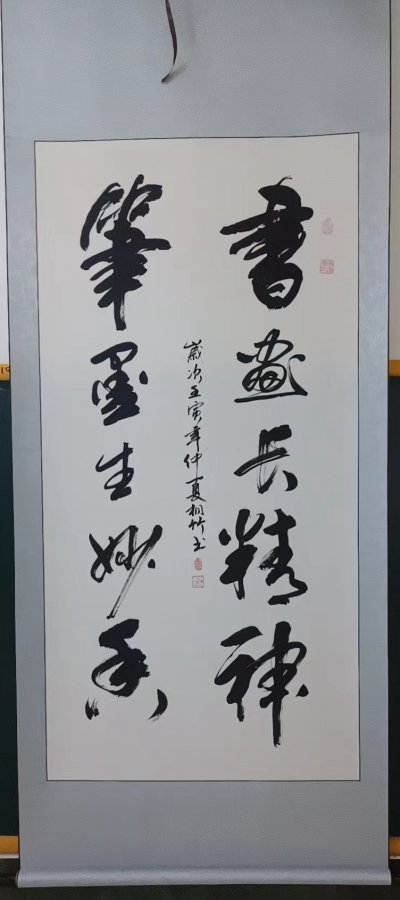 書畫長精神
筆墨生妙香
歲次壬寅年仲夏桐竹书